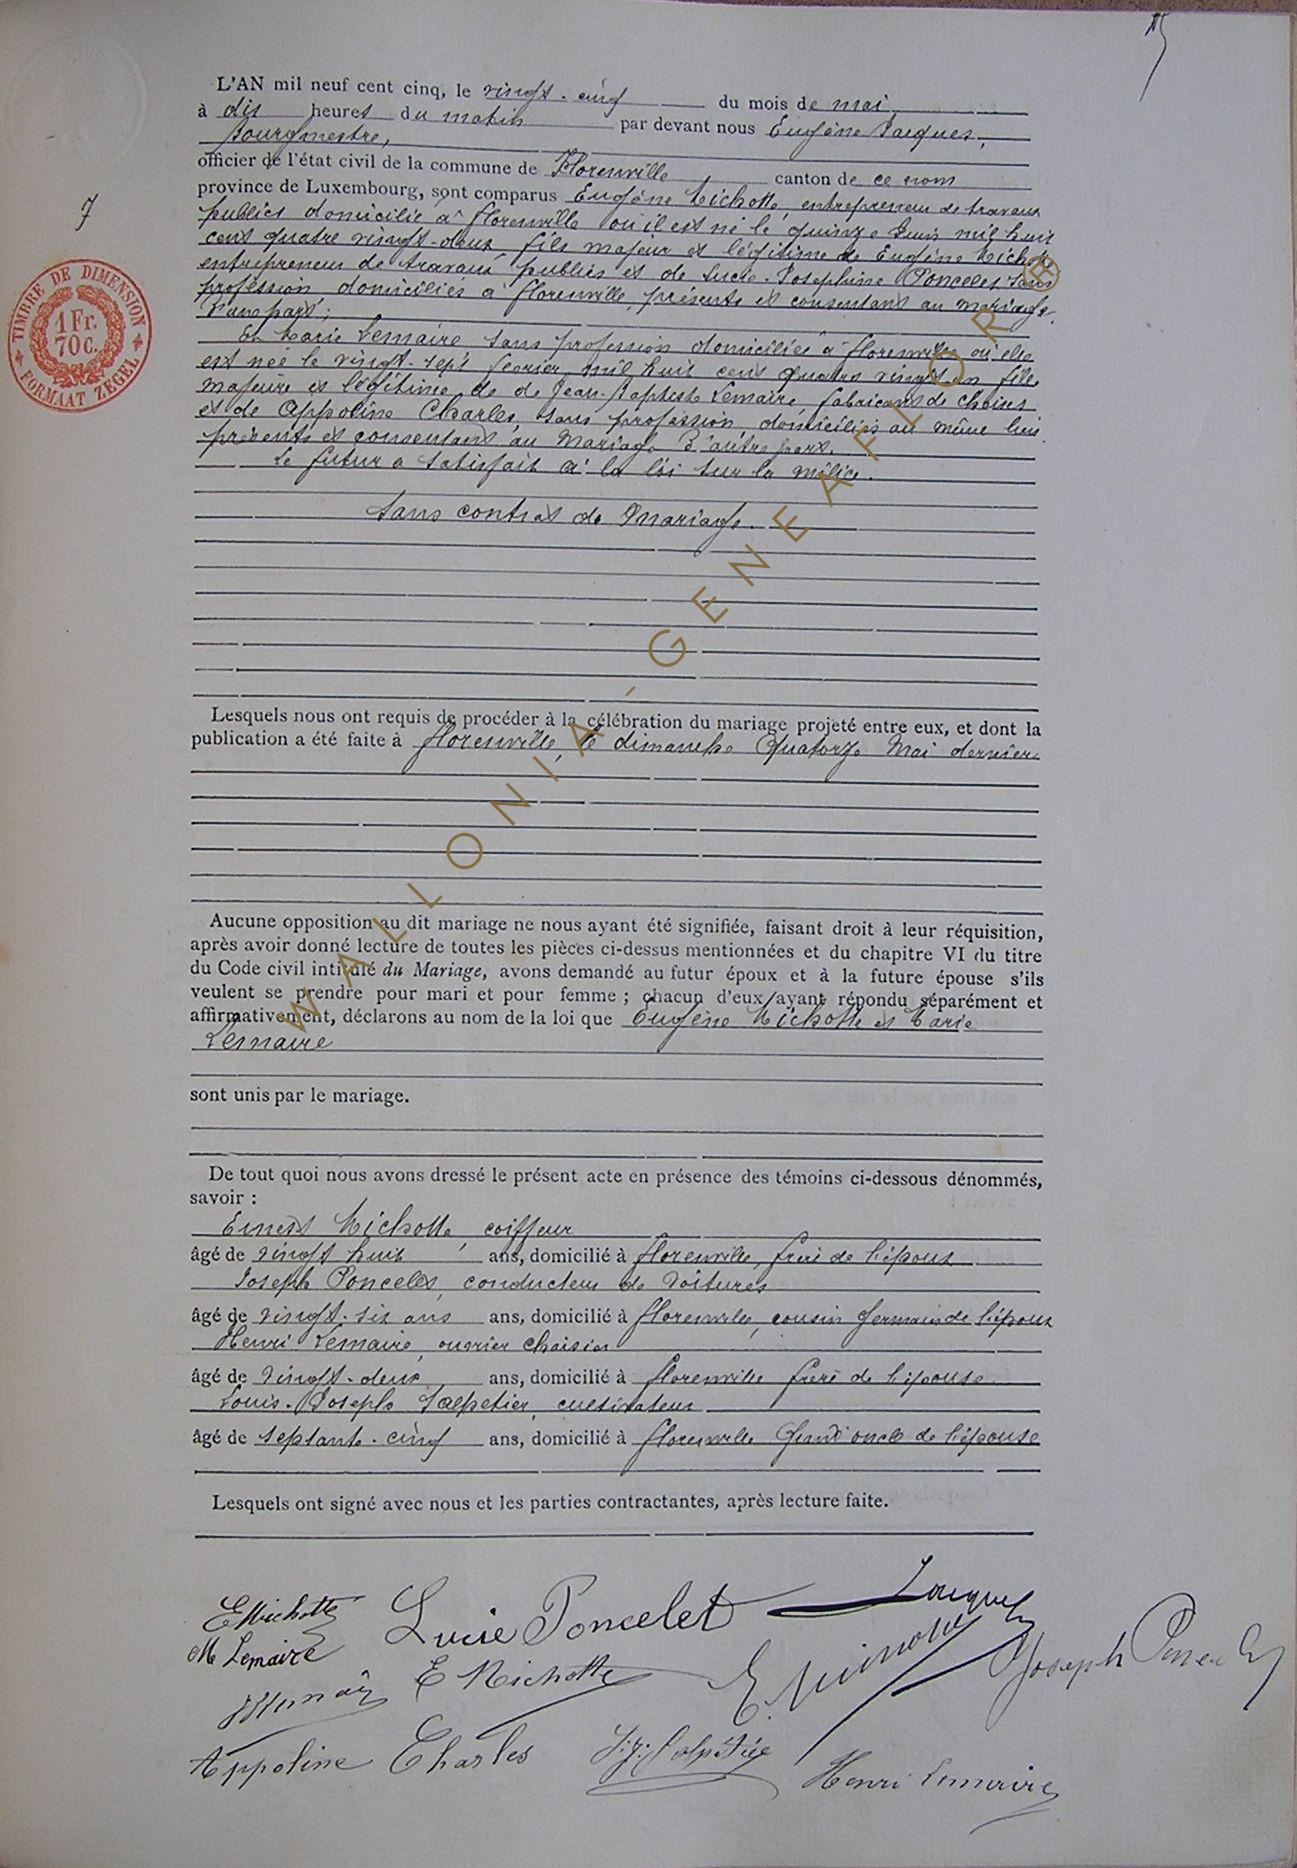 L'AN mil neuf cent cinq, le vingt-cinq du mois de mai
à dix heures du matin par devant nous Eugène Jacques,
bourgmestre,
officier de l'état civil de la commune de Florenville canton de ce nom
province de Luxembourg, sont comparus Eugène Michotte, entrepreneur de travaux
publics domicilié à Florenville où il est né le quinze Juin mil huit
cent quatre vingt-deux fils majeur et légitime de Eugène Michotte
entrepreneur de travaux publics et de Lucie-Joséphine Poncelet sans
profession domiciliés à Florenville, présents et consentant au mariage,
d'une part;
Et Marie Lemaire sans profession domiciliée à Florenville où elle
est née le vingt-sept février mil huit cent quatre vingt un fille
majeure et légitime de de Jean-Baptiste Lemaire fabricant de chaises
et de Appoline Charles, sans profession, domiciliés au même lieu
présents et consentant au Mariage d'autre part.
Le futur a satisfait à la loi sur la milice.
Sans contrat de Mariage.
Lesquels nous ont requis de procéder à la célébration du mariage projeté entre eux, et dont la
publication a été faite à Florenville, le dimanche Quatorze Mai dernier
Aucune opposition au dit mariage ne nous ayant été signifiée, faisant droit à leur réquisition,
après avoir donné lecture de toutes les pièces ci-dessus mentionnées et du chapitre VI du titre
du Code civil intitulé du Mariage, avons demandé au futur époux et à la future épouse s'ils
veulent se prendre pour mari et pour femme ; chacun d'eux ayant répondu séparément et
affirmativement, déclarons au nom de la loi que Eugène Michotte et Marie
Lemaire
sont unis par le mariage.
De tout quoi nous avons dressé le présent acte en présence des témoins ci-dessous dénommés,
savoir :
Ernest Michotte, coiffeur
âgé de vingt huit ans, domicilié à Florenville, frère de l'époux
Joseph Poncelet, conducteur de voitures
âgé de vingt-six ans ans, domicilié à Florenville, cousin germain de l'époux
Henri Lemaire, ouvrier chaisier
âgé de vingt-deux ans, domicilié à Florenville frère de l'épouse
Louis-Joseph Salpetier, cultivateur
âgé de septante-cinq ans, domicilié à Florenville Grand oncle de l'épouse
Lesquels ont signé avec nous et les parties contractantes, après lecture faite.
EMichotte Lucie Poncelet Jacques
M Lemaire E Michotte Joseph Poncelet
Appoline Charles Henri Lemaire
7
TIMBRE DE DIMENSION
1 Fr.
70 c.
FORMAAT ZEGEL
WALLONIA-GENEAFLOR ®